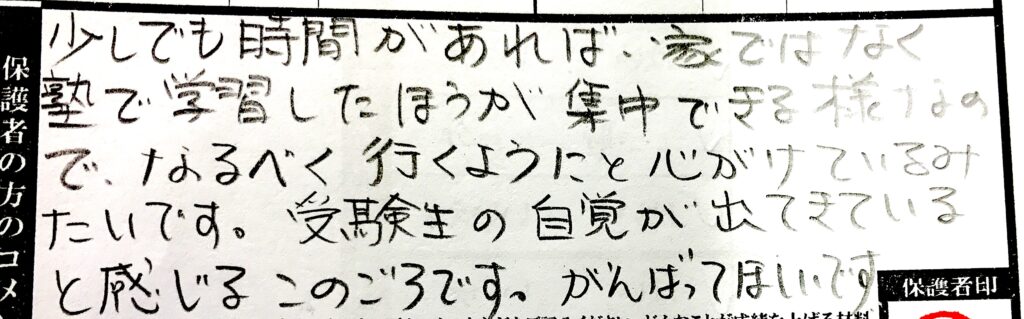 保護者の方のコメ
少しでも時間があれば、家ではなく
塾で学習したほうが集中できる様なの
で、なるべく行くようにと心がけているみ
たいです。受験生の自覚が出てきている
と感じるこのごろです。がんばってほしいです
保護者印